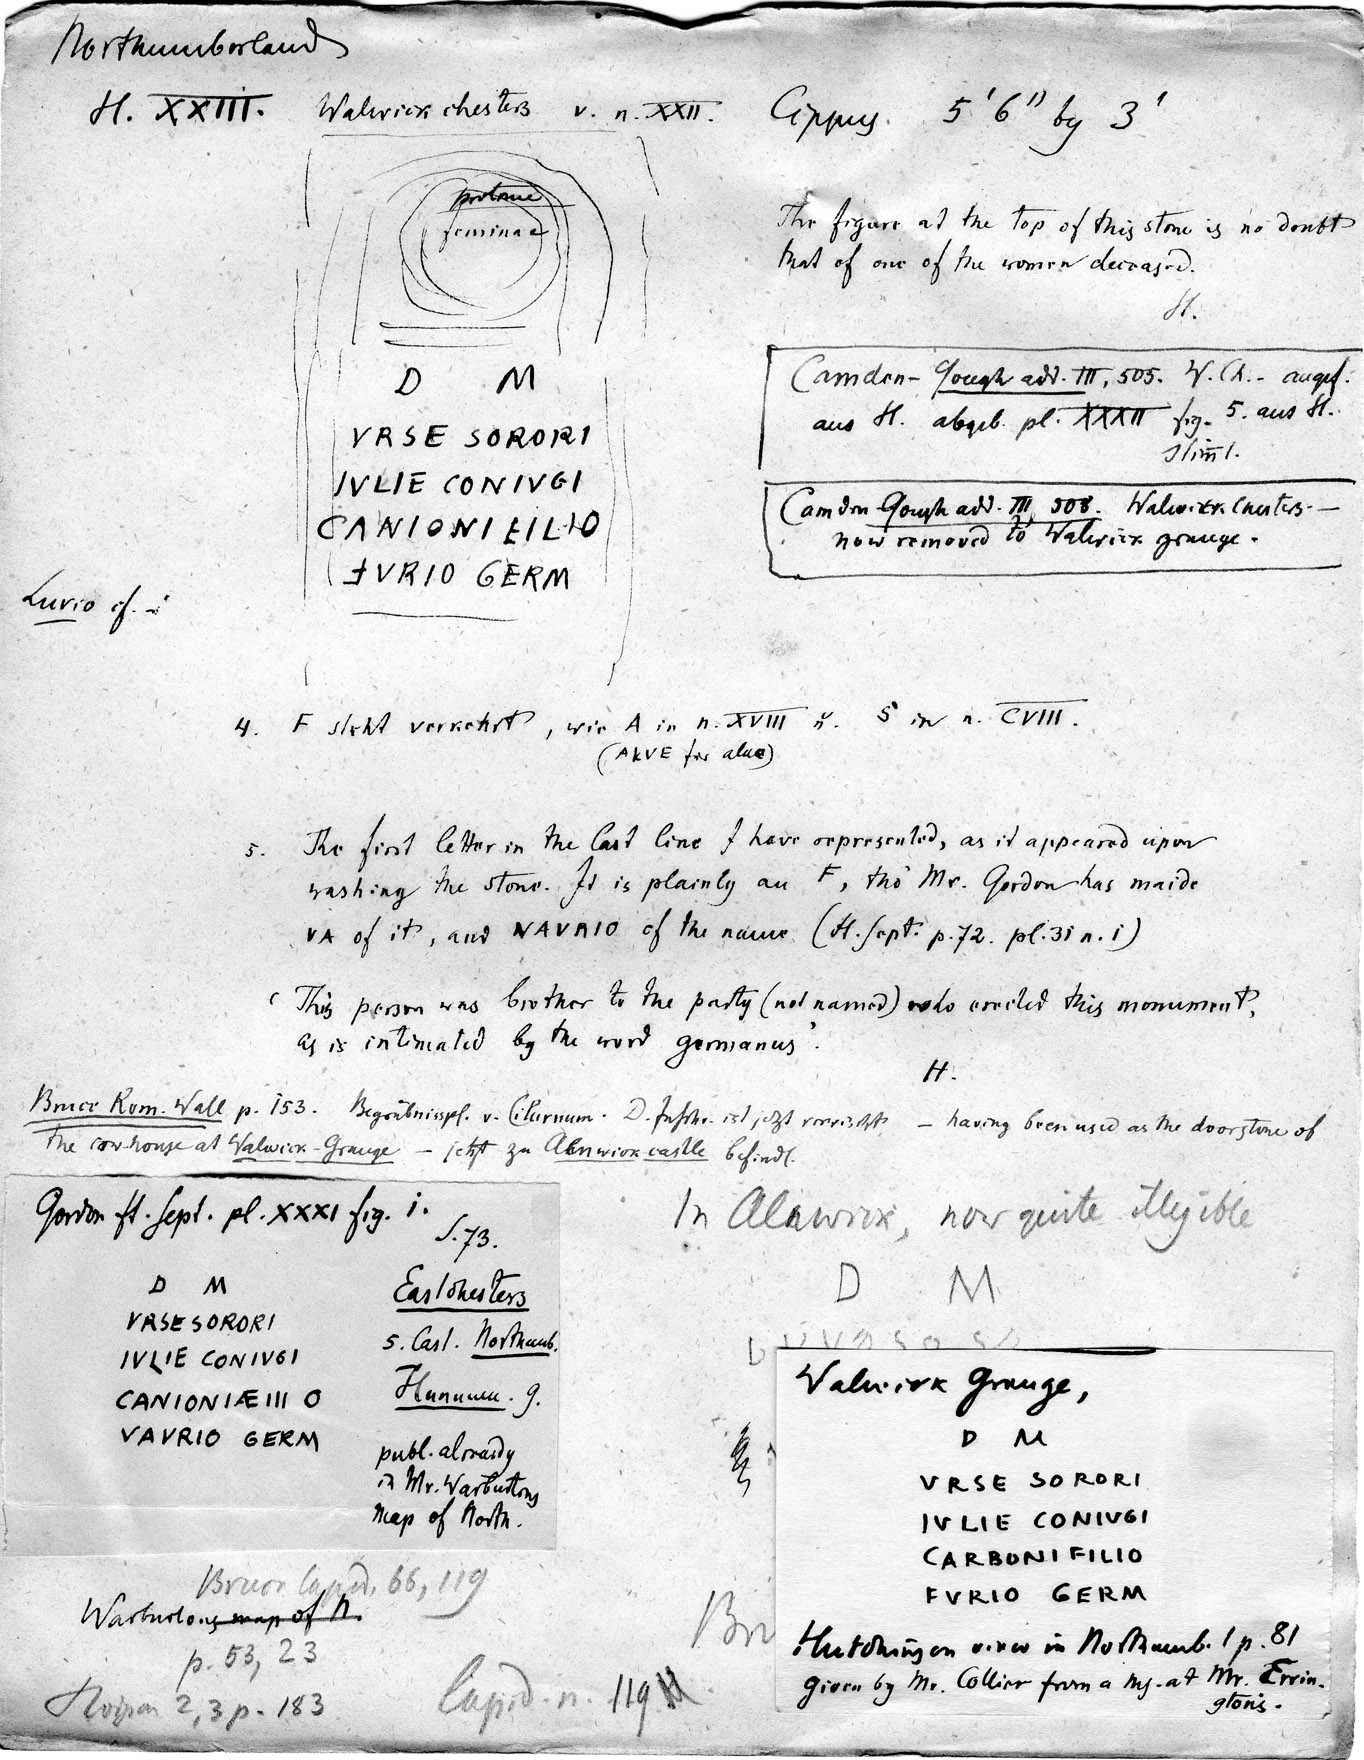 Northumberland
H. XXIII. Walwick chesters v. n. XXII. Cippus. 5' 6" by 3'
protome
feminae
D M
VRSE SORORI
IVLIE CONIVGI
CANIONI FILIO
FVRIO GERM
The figure at the top of this stone is no doubt
that of one of the women deceased.
H.
Camden-Gough add. III, 505. W. Ch. - angef.
aus H. abgeb. pl. XXXII fig. 5. aus H.
stimt.
Camden Gough add. III, 508. Walwick chesters -
now removed to Walwick grange.
Lurio cf. i
4. F steht verkehrt, wie A in n. XVIII u. S in n. CVIII.
(ALVE for alae)
5. The first letter in the last line I have represented, as it appeared upon
washing the stone. It is plainly an F, tho' Mr. Gordon has made
VA of it, and NAVRIO of the name (It. Sept. p. 72. pl. 31 n. 1)
'This person was brother to the party (not named) who erected this monument,
as is intimated by the word germanus'.
H.
Bruce Rom. Wall p. 153. Begräbnispl. v. Cilurnum. D. Inschr. ist jetzt verwischt — having been used as the doorstone of
the cowhouse at Walwick-Grange — jetzt zu Alnwick castle befindl.
Gordon It. Sept. pl. XXXI fig. 1.
S. 73.
D M
VRSE SORORI
IVLIE CONIVGI
CANIONIÆ III O
VAVRIO GERM
East chesters
s. Cast. Northumb.
Hunnum. g.
publ. already
in Mr. Warburtons
map of North.
In Alnwick, now quite illegible
D M
Walwick Grange,
D M
VRSE SORORI
IVLIE CONIVGI
CARBONI FILIO
FVRIO GERM
Hutchinson view in Northumb. 1 p. 81
given by Mr. Collier from a ms. at Mr. Errin-
gton's.
Bruce lapid. 66, 119
Warburtons map of N.
p. 53, 23
2, 3 p. 183
Lapid. n. 119
Bru